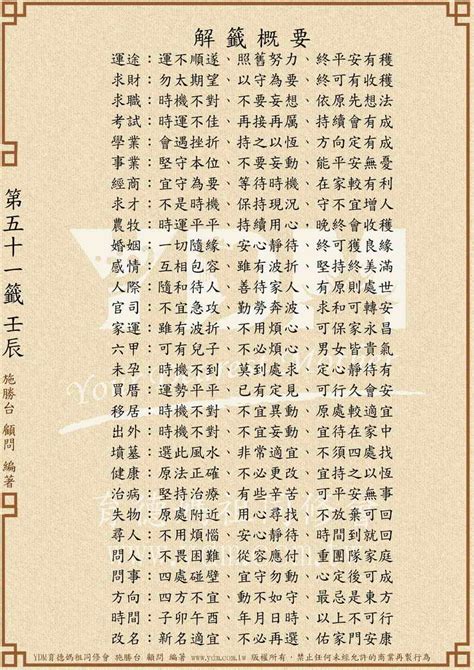 解籤概要
運途：運不順遂、照舊努力、終平安有穫
求財：勿太期望、以守為要、終可有收穫
求職：時機不對、不要妄想、依原先想法
考試：時運不佳、再接再厲、持續會有成
學業：會遇挫折、持之以恆、方向定有成
事業：堅守本位、不要妄動、能平安無憂
經商：宜守為要、等待時機、在家較有利
求才：不是時機、保持現況、守勿宜增人
農牧：時運平平、持續用心、晚終會收穫
婚姻：一切隨緣、安心靜待、終可獲良緣
感情：相互包容、雖有波折、堅持終美滿
人際：隨和有人、善待家人、有原則處世
官司：不宜急攻、勤勞奔波、求和可轉安
家運：雖有波折、不用煩心、可保家永昌
六甲：可有兒子、不用煩惱、男女皆貴氣
未孕：時機不到、莫到處求、安心靜待有
買曆：運勢平平、已有定見、可行久會安
移居：時機不對、不宜異動、原處較適宜
出外：時機不對、不宜妄動、宜待在家中
墳墓：選此風水、非常適宜、不須四處找
健康：原法正確、不必更改、持之以恆
治病：堅持治療、有些辛苦、可平安無事
失物：原處附近、用心尋找、不放棄可回
尋人：不用煩惱、安心靜待、時間到就回
問人：不畏困難、從容應付、重團隊家庭
問事：四處碰壁、宜守勿動、心定是可成
方向：四方不宜、宜守為要、最後是東方
時間：子卯午酉、靜待時日、以此時最佳
改名：新名不適、不必改名、原佑家安康
第五十一籤 壬辰
施勝台 顧問 編著
YDM育德媽祖同修會 施勝台 顧問 編著 www.ydm.com.tw 版權所有，禁止任何未經允許的商業再製行為